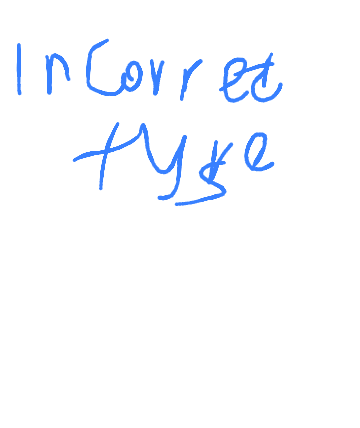 Incorrect
type